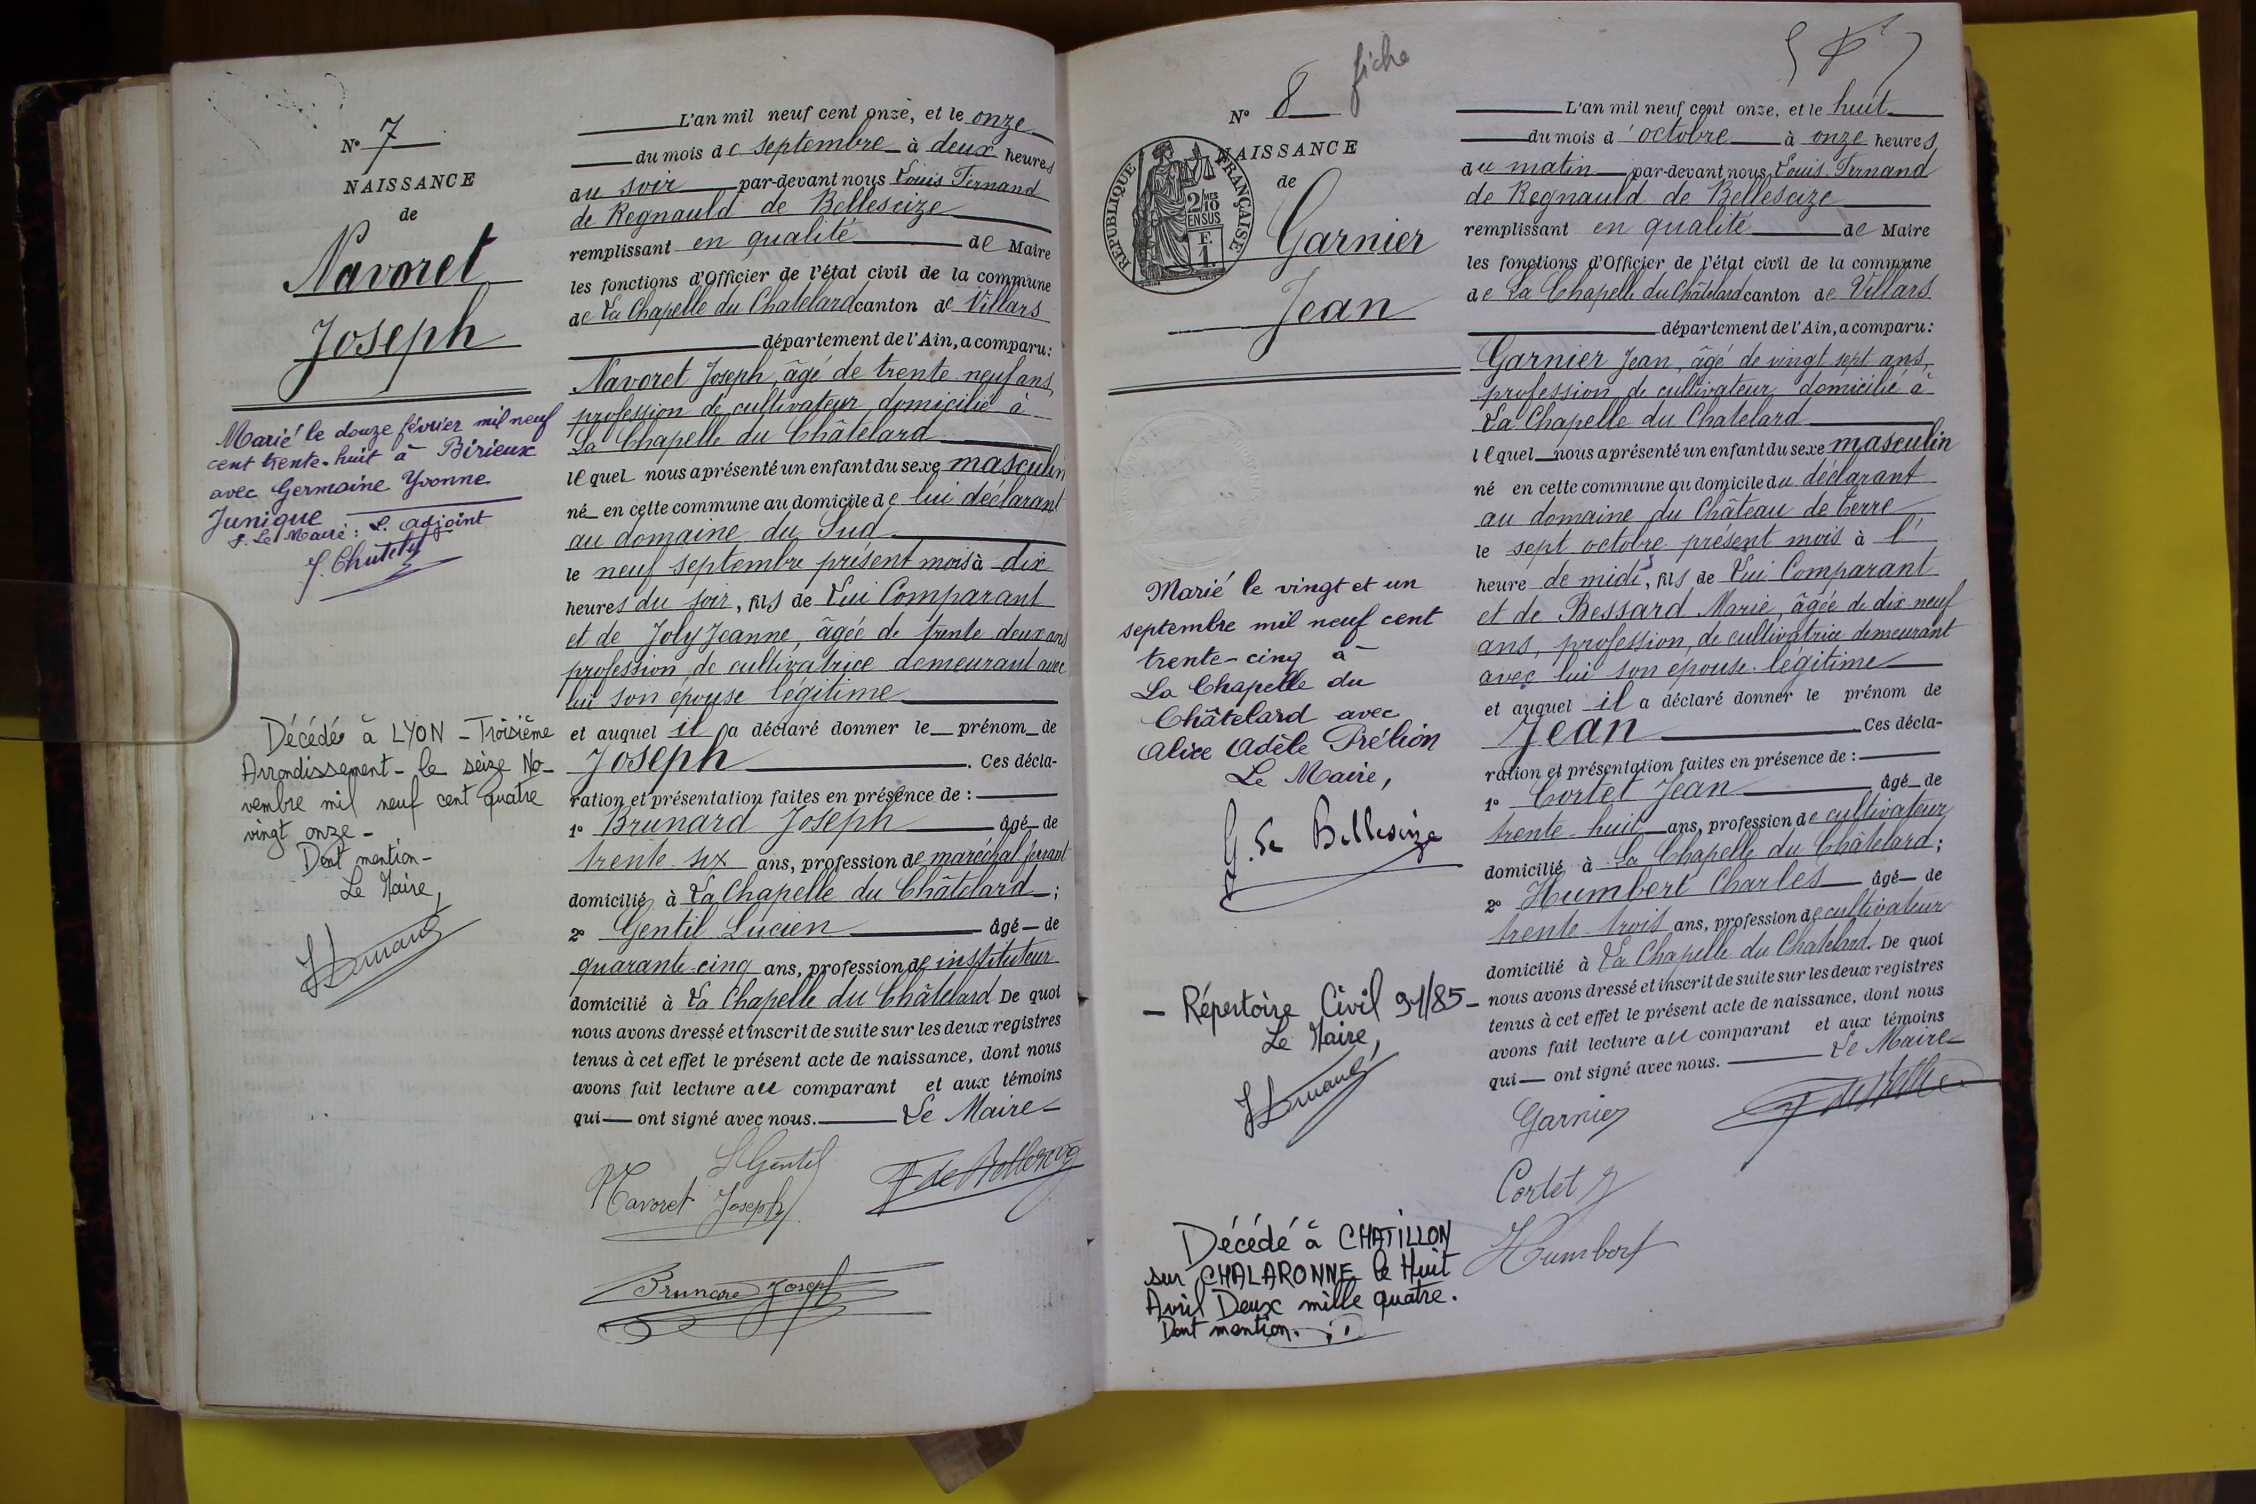 N° 7
NAISSANCE
de
Navoret
Joseph
Marié le douze février mil neuf
cent trente-huit à Birieux
avec Germaine Yvonne
Junique
P. Le Maire : L. adjoint
Décédé à LYON - Troisième
Arrondissement - le seize No-
vembre mil neuf cent quatre
vingt onze -
Dont mention -
Le Maire,
L'an mil neuf cent onze, et le onze
du mois de septembre à deux heures
du soir par-devant nous Louis Fernand
de Regnauld de Bellescize
remplissant en qualité de Maire
les fonctions d'Officier de l'état civil de la commune
de La Chapelle du Chatelard canton de Villars
département de l'Ain, a comparu :
Navoret Joseph, âgé de trente neuf ans,
profession de cultivateur domicilié à
La Chapelle du Châtelard
lequel nous a présenté un enfant du sexe masculin
né en cette commune au domicile de lui déclarant
au domaine du Sud
le neuf septembre présent mois à dix
heures du soir, fils de Lui Comparant
et de Joly Jeanne, âgée de trente deux ans
profession de cultivatrice demeurant avec
lui son épouse légitime
et auquel il a déclaré donner le prénom de
Joseph. Ces décla-
ration et présentation faites en présence de :
1° Brunard Joseph âgé de
trente-six ans, profession de maréchal ferrant
domicilié à La Chapelle du Châtelard ;
2° Gentil Lucien âgé de
quarante-cinq ans, profession de instituteur
domicilié à La Chapelle du Châtelard De quoi
nous avons dressé et inscrit de suite sur les deux registres
tenus à cet effet le présent acte de naissance, dont nous
avons fait lecture au comparant et aux témoins
qui ont signé avec nous. Le Maire
L Gentil
Navoret Joseph
Brunard Joseph
fiche
N° 8
NAISSANCE
de
RÉPUBLIQUE FRANÇAISE
2/10 MES
EN SUS
F.
1.
Garnier
Jean
Marié le vingt et un
septembre mil neuf cent
trente-cinq à
La Chapelle du
Châtelard avec
Alice Adèle Prélion
Le Maire,
G. de Bellescize
- Répertoire Civil 91/85 -
Le Maire,
Décédé à CHATILLON
sur CHALARONNE le Huit
Avril Deux mille quatre.
Dont mention.
L'an mil neuf cent onze, et le huit
du mois d'octobre à onze heures
du matin par-devant nous Louis Fernand
de Regnauld de Bellescize
remplissant en qualité de Maire
les fonctions d'Officier de l'état civil de la commune
de La Chapelle du Châtelard canton de Villars
département de l'Ain, a comparu :
Garnier Jean, âgé de vingt sept ans,
profession de cultivateur domicilié à
La Chapelle du Chatelard
lequel nous a présenté un enfant du sexe masculin
né en cette commune au domicile du déclarant
au domaine du Château de terre
le sept octobre présent mois à l'
heure de midi, fils de Lui Comparant
et de Bessard Marie, âgée de dix neuf
ans, profession de cultivatrice demeurant
avec lui son épouse légitime
et auquel il a déclaré donner le prénom de
Jean Ces décla-
ration et présentation faites en présence de :
1° Cortet Jean âgé de
trente-huit ans, profession de cultivateur
domicilié à La Chapelle du Châtelard ;
2° Humbert Charles âgé de
trente-trois ans, profession de cultivateur
domicilié à La Chapelle du Chatelard. De quoi
nous avons dressé et inscrit de suite sur les deux registres
tenus à cet effet le présent acte de naissance, dont nous
avons fait lecture au comparant et aux témoins
qui ont signé avec nous. Le Maire
Garnier
Cortet J
Humbert